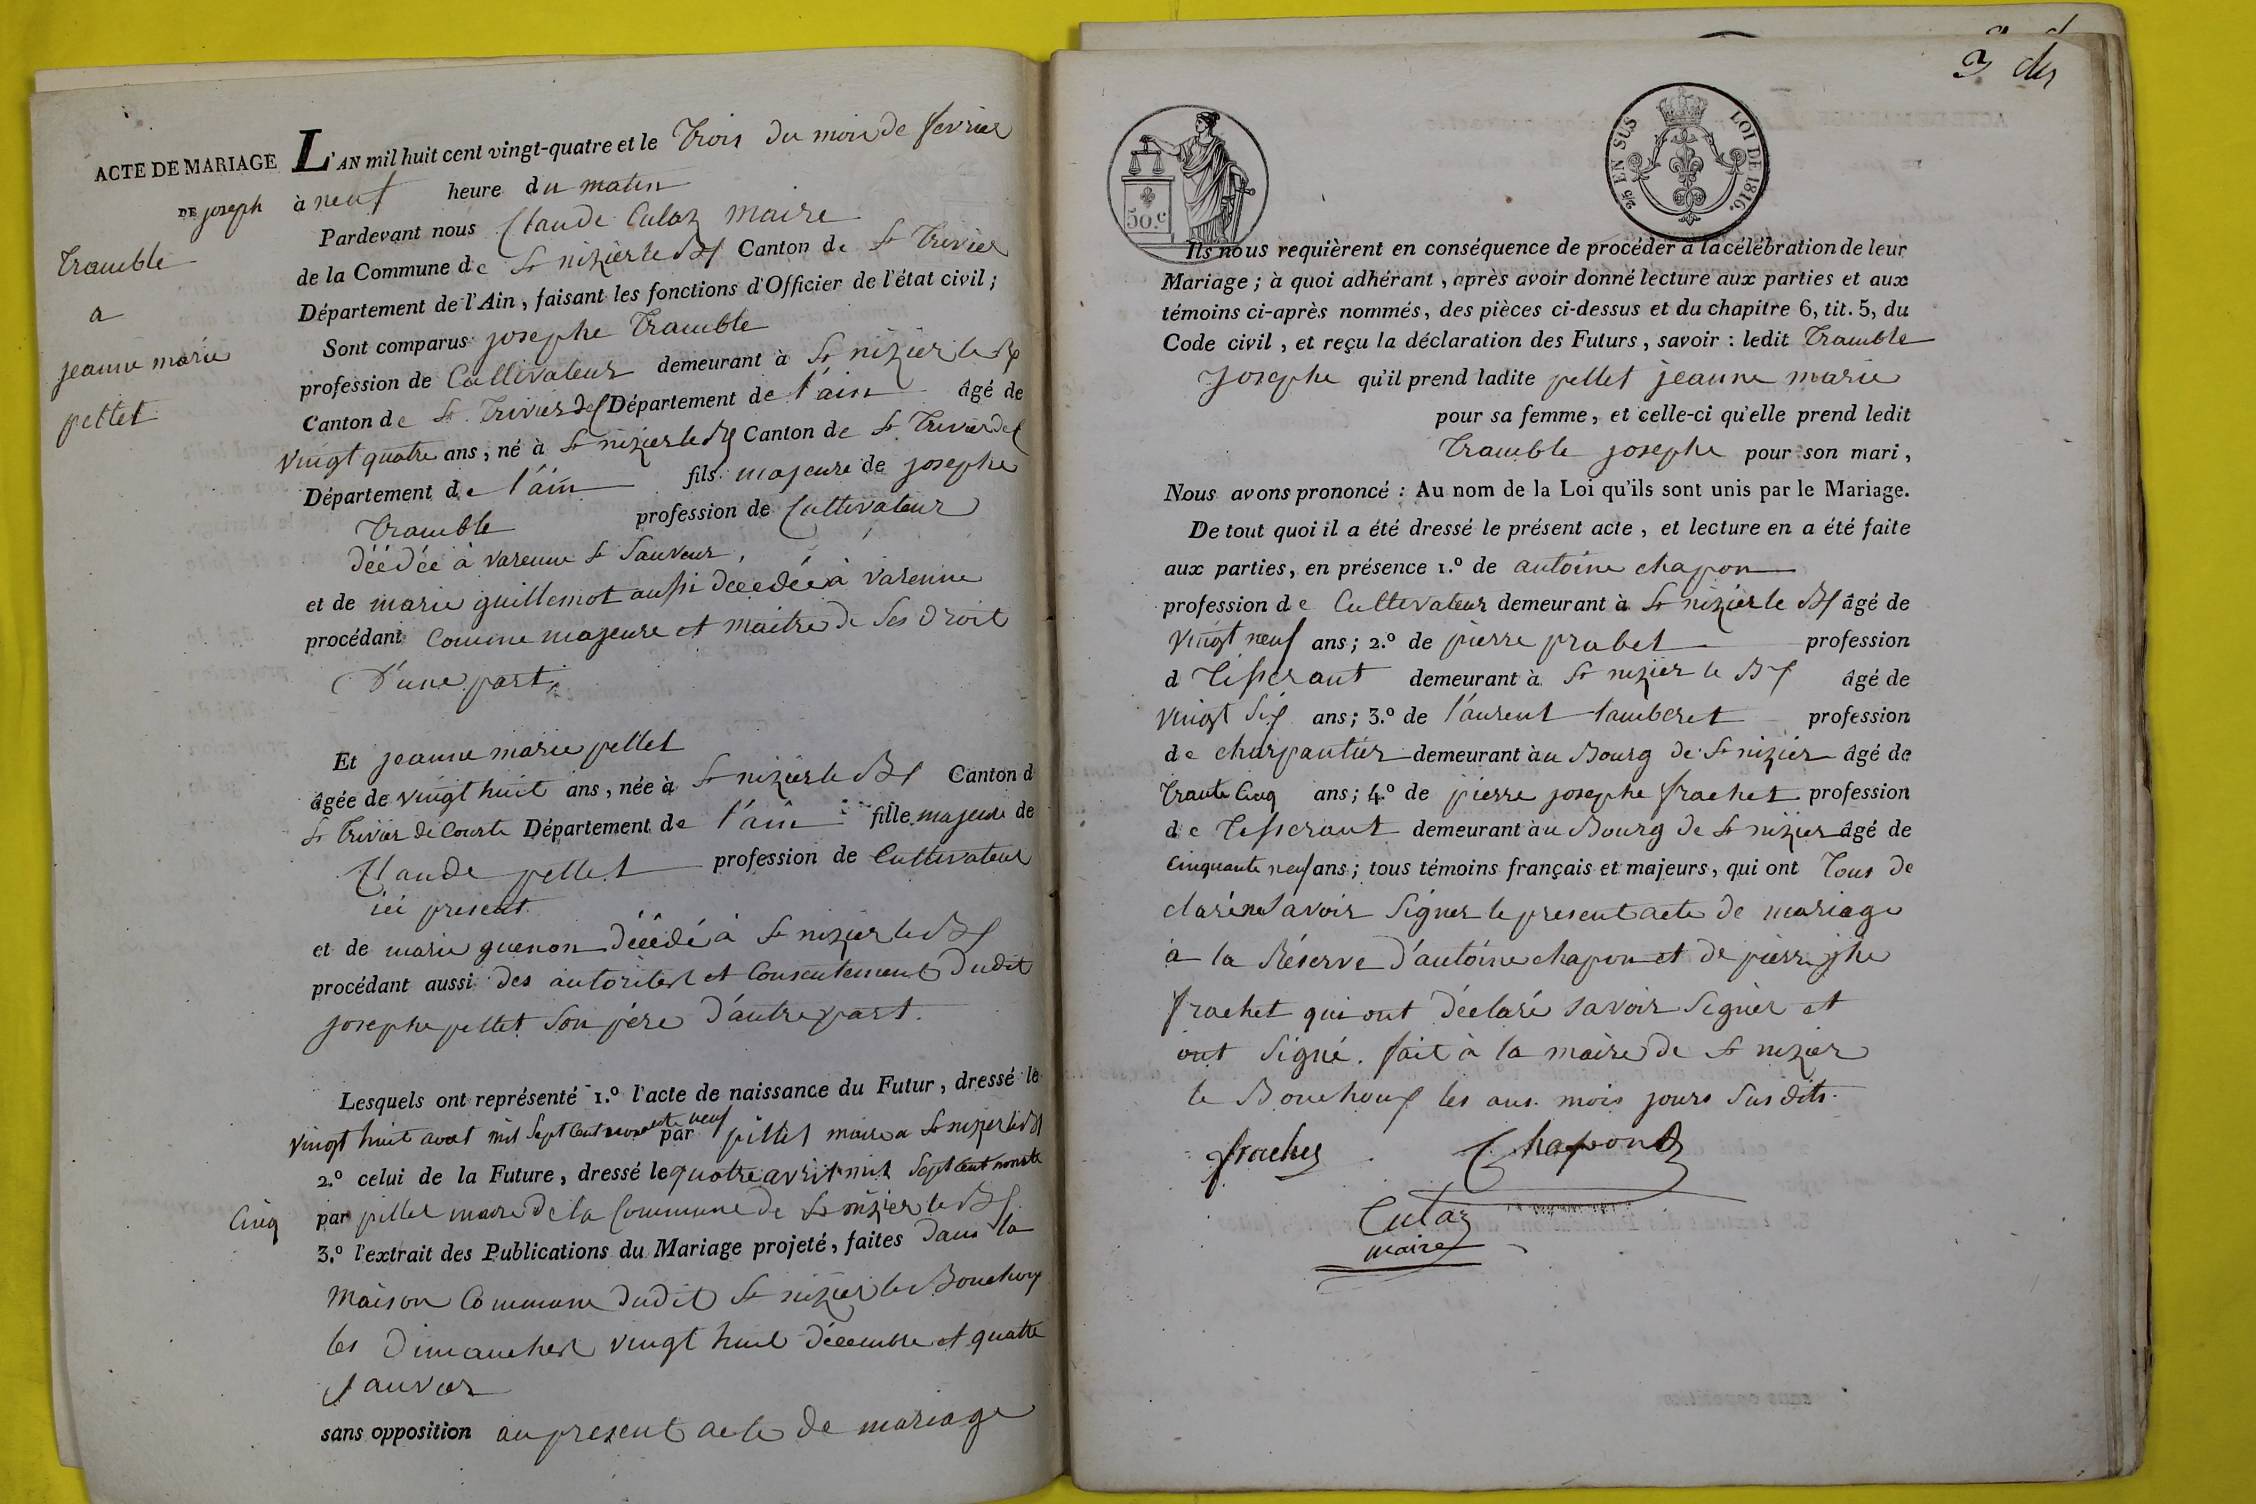 ACTE DE MARIAGE
DE joseph
Tramble
a
jeanne marie
pellet
L'AN mil huit cent vingt-quatre et le Trois du mois de fevrier
à neuf heure du matin
Pardevant nous Claude Culaz maire
de la Commune de St nizier le Bx Canton de St Trivier
Département de l'Ain, faisant les fonctions d'Officier de l'état civil;
Sont comparus josephe Tramble
profession de Cultivateur demeurant à St nizier le Bx
Canton de St Trivier de C Département de l'ain âgé de
vingt quatre ans, né à St nizier le Bx Canton de St Trivier de C
Département de l'ain fils majeure de josephe
Tramble profession de Cultivateur
déédée à varenne St Sauveur,
et de marie guillemot aussi déedée à varenne
procédant comme majeure et maitre de ses droit
D'une part,
Et jeanne marie pellet
âgée de vingt huit ans, née à St nizier le Bx Canton d
St Trivier de Courte Département de l'ain fille majeure de
Claude pellet profession de Cultivateur
ici present
et de marie guenon déédé à St nizier le Bx
procédant aussi des autoritest et Consentement dudit
josephe pellet son père d'autre part.
Lesquels ont représenté 1.º l'acte de naissance du Futur, dressé le
vingt huit avat mil Sept Cent nonante neuf par pillet maire a St nizier le Bx
2.º celui de la Future, dressé le quatre avril mil Sept Cent nonante
Cinq par pillet maire de la Commune de St nizier le Bx
3.º l'extrait des Publications du Mariage projeté, faites dans la
maison Commune dudit St nizier le Bouchoux
les Dimanchest vingt huit décembre et quatte
janvier
sans opposition au present acte de mariage
3 de
50.c
2/5 EN SUS LOI DE 1816.
Ils nous requièrent en conséquence de procéder à la célébration de leur
Mariage; à quoi adhérant, après avoir donné lecture aux parties et aux
témoins ci-après nommés, des pièces ci-dessus et du chapitre 6, tit. 5, du
Code civil, et reçu la déclaration des Futurs, savoir: ledit Tramble
Josephe qu'il prend ladite pellet jeanne marie
pour sa femme, et celle-ci qu'elle prend ledit
Tramble josephe pour son mari,
Nous avons prononcé: Au nom de la Loi qu'ils sont unis par le Mariage.
De tout quoi il a été dressé le présent acte, et lecture en a été faite
aux parties, en présence 1.º de antoine chapon
profession de Cultivateur demeurant à St nizier le Bx âgé de
vingt neuf ans; 2.º de pierre prabet profession
d Tisserant demeurant à St nizier le Bx âgé de
vingt Six ans; 3.º de l'aurent lamberet profession
de charpantier demeurant àu Bourg de St nizier âgé de
Trante Cinq ans; 4.º de pierre josephe frachet profession
de Tisserant demeurant àu Bourg de St nizier âgé de
Cinquante neuf ans; tous témoins français et majeurs, qui ont Tous de
claré ne savoir Signer le present acte de mariage
à la Réserve d'antoine chapon et de pierre jhe
frachet qui ont déclaré savoir Signer et
ont Signé. fait à la maire de St nizier
le Bouchoux les ans mois jours Susdits.
frachet Chapond
Culaz
maire